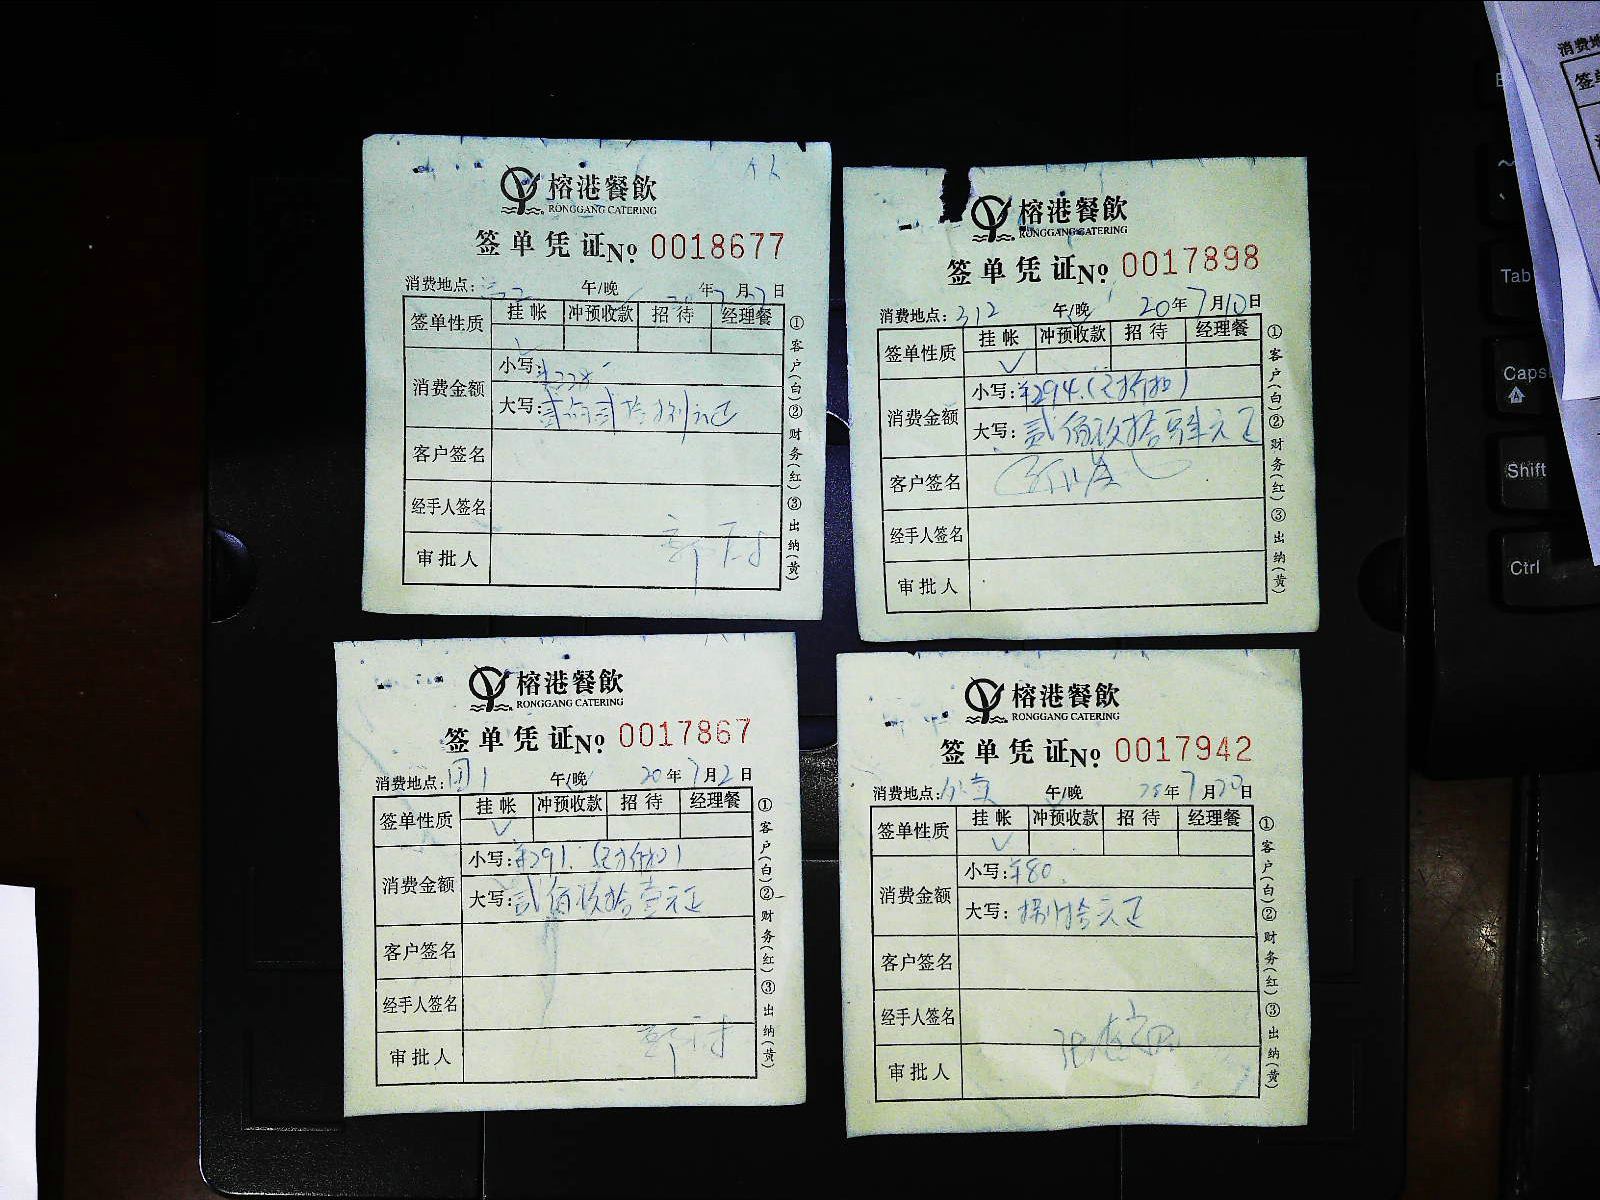 榕港餐飲
RONGGANG CATERING
签单凭证No 0018677
消费地点: 午/晚 年7月 日
签单性质 挂帐 冲预收款 招待 经理餐
消费金额 小写:¥228
大写:贰佰贰拾捌元正
客户签名
经手人签名
审批人
①客户(白)②财务(红)③出纳(黄)
榕港餐飲
RONGGANG CATERING
签单凭证No 0017898
消费地点:312 午/晚 20年7月10日
签单性质 挂帐 冲预收款 招待 经理餐
消费金额 小写:¥294.(已折扣)
大写:贰佰玖拾肆元正
客户签名
经手人签名
审批人
①客户(白)②财务(红)③出纳(黄)
榕港餐飲
RONGGANG CATERING
签单凭证No 0017867
消费地点:团1 午/晚 20年7月2日
签单性质 挂帐 冲预收款 招待 经理餐
消费金额 小写:¥291.(已折扣)
大写:贰佰玖拾壹元正
客户签名
经手人签名
审批人
①客户(白)②财务(红)③出纳(黄)
榕港餐飲
RONGGANG CATERING
签单凭证No 0017942
消费地点: 午/晚 年7月 日
签单性质 挂帐 冲预收款 招待 经理餐
消费金额 小写:¥80.
大写:捌拾元正
客户签名
经手人签名
审批人
①客户(白)②财务(红)③出纳(黄)
签单
Tab
Caps
Shift
Ctrl